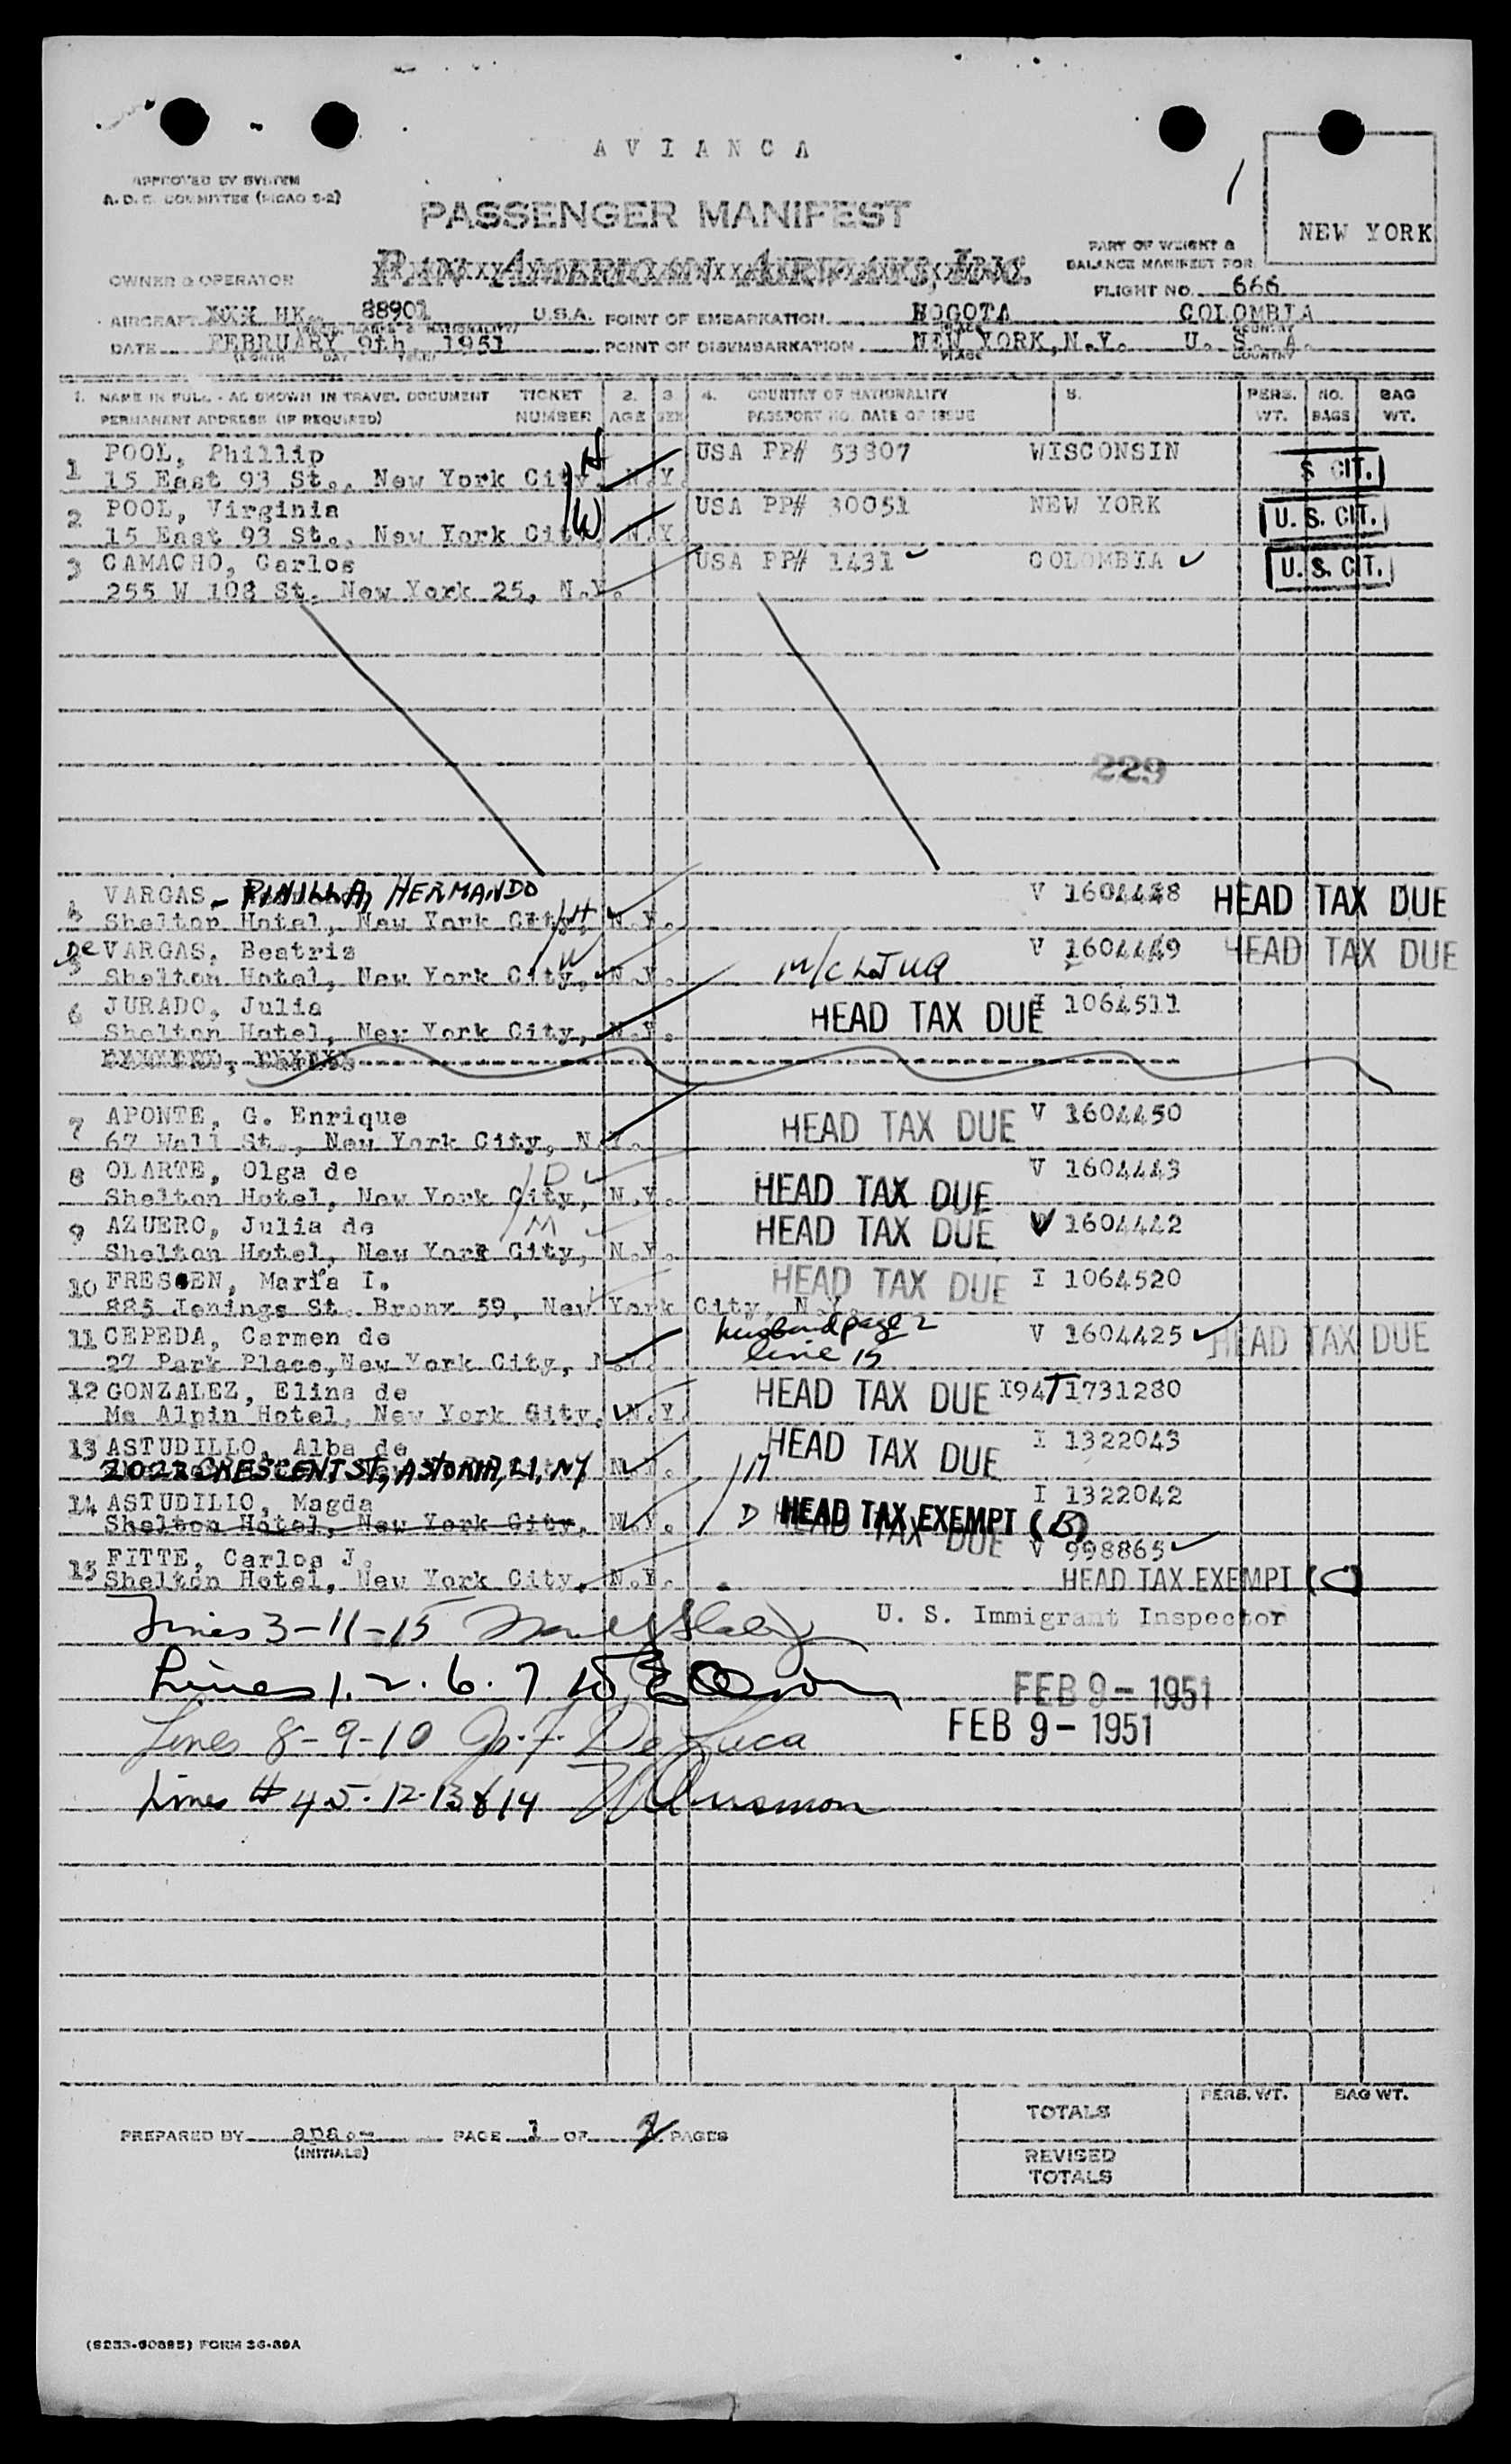 A V I A N C A
APPROVED BY SYSTEM
A. D. C. COMMITTEE (MCAO 5-2)
PASSENGER MANIFEST
NEW YORK
PAN AMERICAN AIRWAYS, INC.
PART OF WEIGHT &
BALANCE MANIFEST FOR
OWNER & OPERATOR
FLIGHT NO. 666
AIRCRAFT XXX HK. 88901 U.S.A. POINT OF EMBARKATION BOGOTA COLOMBIA
DATE FEBRUARY 9th, 1951 POINT OF DISEMBARKATION NEW YORK, N.Y. U. S. A.
1. NAME IN FULL - AS SHOWN IN TRAVEL DOCUMENT TICKET 2. 3. 4. COUNTRY OF NATIONALITY 5. PERS. NO. BAG
PERMANENT ADDRESS (IF REQUIRED) NUMBER AGE SEX PASSPORT NO. DATE OF ISSUE WT. BAGS WT.
1 POOL, Phillip USA PP# 53807 WISCONSIN
15 East 93 St., New York City, N.Y. H S. CIT.
2 POOL, Virginia USA PP# 30051 NEW YORK
15 East 93 St., New York City, N.Y. W U. S. CIT.
3 CAMACHO, Carlos USA PP# 1431 COLOMBIA U. S. CIT.
255 W 108 St. New York 25, N.Y.
229
4 VARGAS - PINILLA, HERMANDO V 1604448 HEAD TAX DUE
Shelton Hotel, New York City, N.Y. H
5 De VARGAS, Beatris V 1604449 HEAD TAX DUE
Shelton Hotel, New York City, N.Y. W
6 JURADO, Julia I 1064511
Shelton Hotel, New York City, N.Y. HEAD TAX DUE
7 APONTE, G. Enrique HEAD TAX DUE V 1604450
67 Wall St., New York City, N.Y.
8 OLARTE, Olga de D V 1604443
Shelton Hotel, New York City, N.Y. HEAD TAX DUE
9 AZUERO, Julia de M HEAD TAX DUE V 1604442
Shelton Hotel, New York City, N.Y.
10 FRESEN, Maria I. HEAD TAX DUE I 1064520
885 Jenings St. Bronx 59, New York City, N.Y.
11 CEPEDA, Carmen de husband page 2 V 1604425 HEAD TAX DUE
27 Park Place, New York City, N.Y. line 15
12 GONZALEZ, Elina de HEAD TAX DUE I94T1731280
Mc Alpin Hotel, New York City, N.Y.
13 ASTUDILLO, Alba de HEAD TAX DUE I 1322043
2022 CRESCENT ST, ASTORIA, LI, NY M
14 ASTUDILLO, Magda I 1322042
Shelton Hotel, New York City, N.Y. D HEAD TAX EXEMPT (B)
HEAD TAX DUE
15 FITTE, Carlos J. V 998865
Shelton Hotel, New York City, N.Y. HEAD TAX EXEMPT (C)
Lines 3-11-15 U. S. Immigrant Inspector
Lines 1. 2. 6. 7 FEB 9 - 1951
Lines 8-9-10 Jr. F. De Luca FEB 9 - 1951
Lines # 4-5-12-13 & 14
PERS. WT. BAG WT.
TOTALS
PREPARED BY apa.- PAGE 1 OF 2 PAGES
(INITIALS)
REVISED
TOTALS
(5253-60895) FORM 36-89A